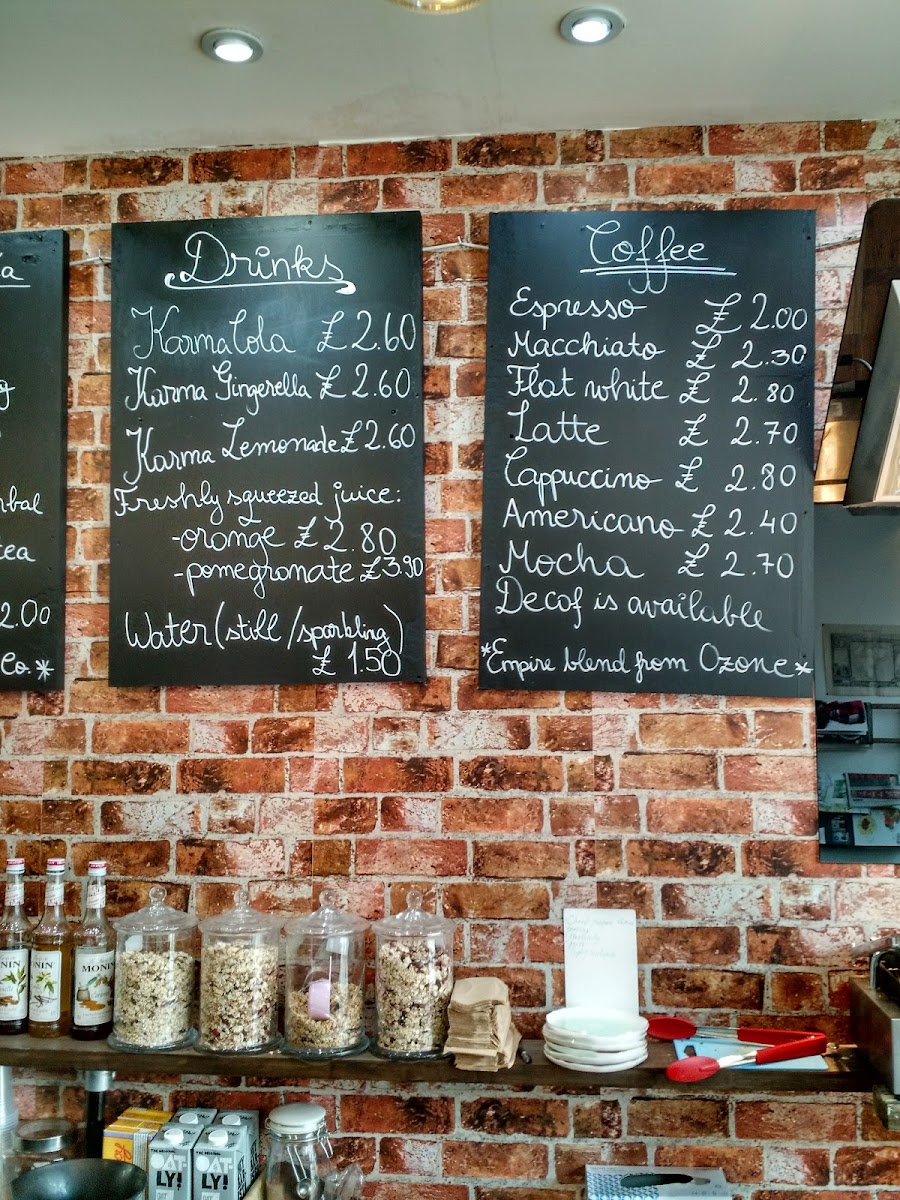 rbal
tea
2.00
Co.*
Drinks
Karma Cola £2.60
Karma Gingerella £2.60
Karma Lemonade £2.60
Freshly squeezed juice:
-orange £2.80
-pomegranate £3.90
Water (still/sparkling)
£1.50
Coffee
Espresso £2.00
Macchiato £2.30
Flat white £2.80
Latte £2.70
Cappuccino £2.80
Americano £2.40
Mocha £2.70
Decaf is available
*Empire blend from Ozone*
MONIN
OATLY!
OATLY!